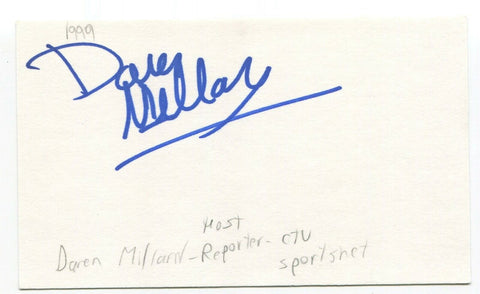 1999
Daren
Millard
Host
Daren Millard - Reporter - CTV
sportsnet